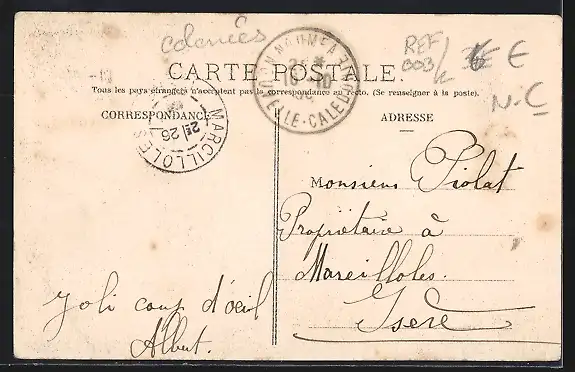 colonies
REF/
003/
€
N-C
NOUMEA
Nˡˡᵉ CALEDONIE
CARTE POSTALE.
Tous les pays étrangers n'acceptent pas la correspondance au recto. (Se renseigner à la poste).
CORRESPONDANCE
ADRESSE
MARCILLOLES
2ᴱ 26
Monsieur Piolat
Propriétaire à
Marcilloles.
Isère
Joli coup d'œil
Albert.